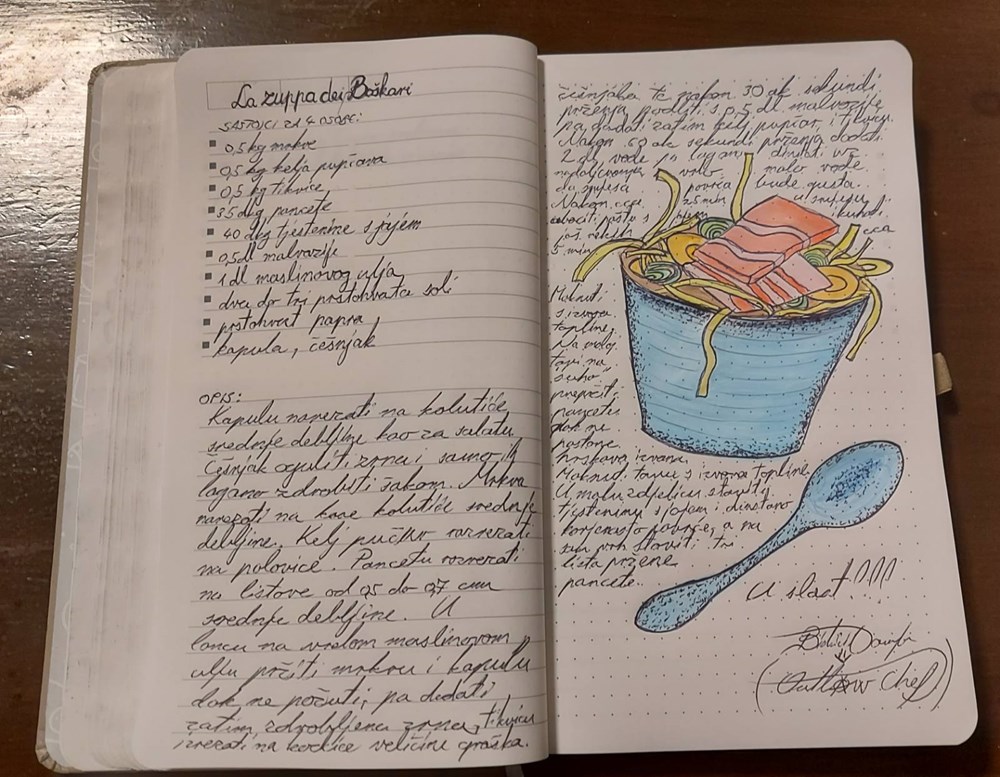 La zuppa dei Boškari
SASTOJCI ZA 4 OSOBE:
0,5 kg mrkve
0,5 kg kelja pupčara
0,5 kg tikvice
35 dag pancete
40 dag tjestenine s jajem
0,5 dl malvazije
1 dl maslinovog ulja
dva do tri prstohvata soli
prstohvat papra
kapula, češnjak
OPIS:
Kapulu narezati na kolutiće
srednje debljine kao za salatu
Češnjak oguliti zrna i samo ih
lagano zdrobiti šakom. Mrkva
narezati na kose kolutiće srednje
debljine. Kelj pučkar razrezati
na polovice. Pancetu razrezati
na listove od 0,5 do 0,7 cm
srednje debljine. U
loncu na vrelom maslinovom
ulju pržiti mrkvu i kapulu
dok ne požuti, pa dodati
zatim zdrobljena zrna, tikvicu
izrezati na kockice veličine graška.
češnjaka te nakon 30 ak sekundi
prženja podliti s 0,5 dl malvazije
pa dodati zatim kelj pupčar, i tikvicu.
Nakon 60 ak sekundi prženja dodati
2 dl vode i lagano dinstati uz
nadolijevanje vrlo malo vode
da smjesa povrća bude gusta.
Nakon cca 25 min u smjesu
ubaciti pastu s jajem i kuhati
još nekih cca
5 min
Maknut
s izvora
topline.
Na maloj
tavi na
"suho"
prepržit
pancetu
dok ne
postane
hrskava izvana.
Maknut tavu s izvora topline
U malu zdjelicu staviti
tjesteninu s jajem i dinstano
korjenasto povrće, a na
sam vrh staviti tri
lista pržene
pancete.
U slast!!!
(Outlaw Chef)